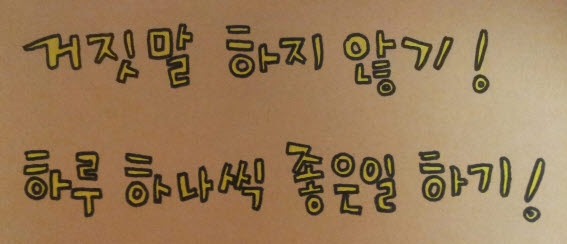 거짓말 하지 않기!
하루 하나씩 좋은일 하기!